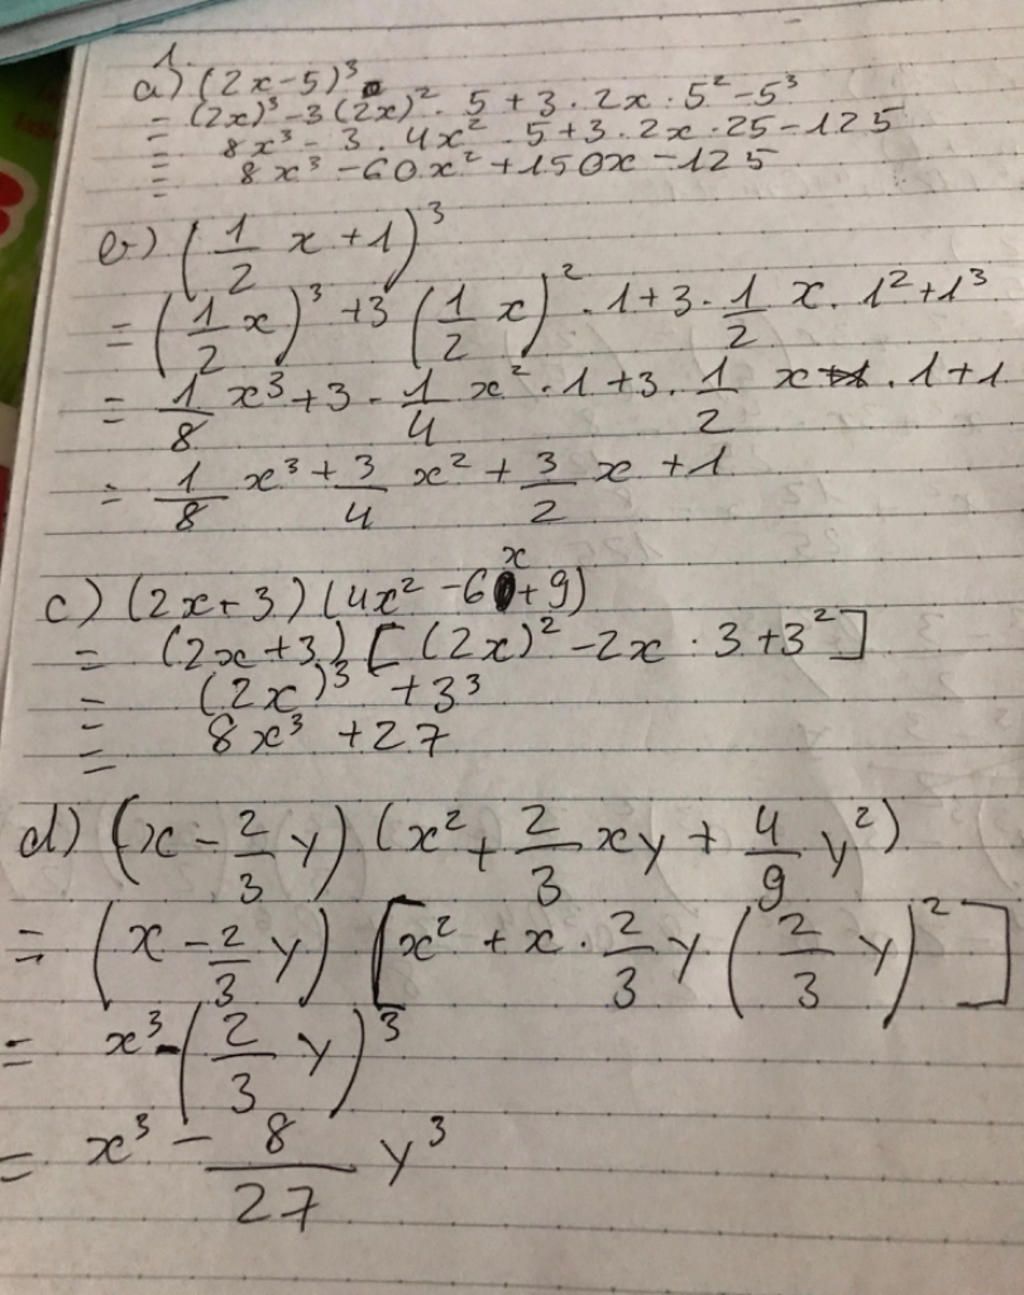 1.
a) (2x-5)³
= (2x)³ - 3(2x)² . 5 + 3 . 2x . 5² - 5³
= 8x³ - 3 . 4x² . 5 + 3 . 2x . 25 - 125
= 8x³ - 60x² + 150x - 125
b) (1/2 x + 1)³
= (1/2 x)³ + 3 (1/2 x)² . 1 + 3 . 1/2 x . 1² + 1³
= 1/8 x³ + 3 . 1/4 x² . 1 + 3 . 1/2 x . 1 + 1
= 1/8 x³ + 3/4 x² + 3/2 x + 1
c) (2x + 3) (4x² - 6x + 9)
= (2x + 3) [(2x)² - 2x . 3 + 3²]
= (2x)³ + 3³
= 8x³ + 27
d) (x - 2/3 y) (x² + 2/3 xy + 4/9 y²)
= (x - 2/3 y) [x² + x . 2/3 y (2/3 y)²]
= x³ - (2/3 y)³
= x³ - 8/27 y³